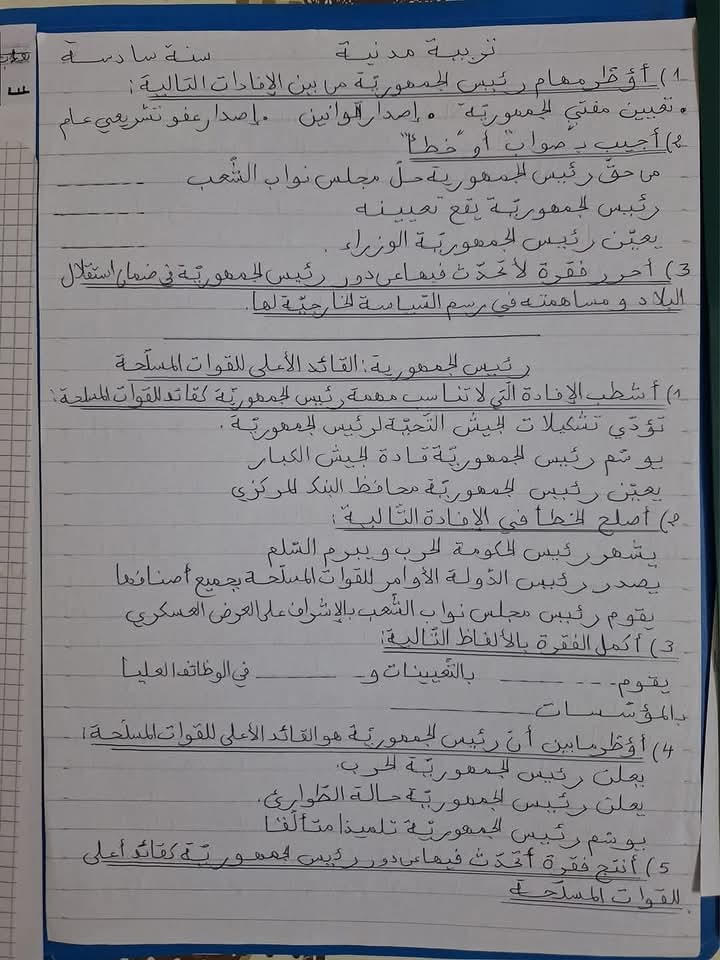 تربية مدنية سنة سادسة
1) أؤطر مهام رئيس الجمهوريّة من بين الإفادات التالية:
• تعيين مفتي الجمهوريّة • إصدار القوانين • إصدار عفو تشريعي عام
2) أجيب بـ "صواب" أو "خطأ"
من حقّ رئيس الجمهورية حلّ مجلس نواب الشّعب ________
رئيس الجمهوريّة يقع تعيينه ________
يعيّن رئيس الجمهوريّة الوزراء. ________
3) أحرر فقرة لأتحدّث فيها عن دور رئيس الجمهوريّة في ضمان استقلال
البلاد و مساهمته في رسم السّياسة الخارجيّة لها.
رئيس الجمهورية: القائد الأعلى للقوات المسلّحة
1) أشطب الإفادة الّتي لا تناسب مهمة رئيس الجمهوريّة كقائد القوات المسلحة:
تؤدّي تشكيلات الجيش التّحيّة لرئيس الجمهوريّة.
يوسّم رئيس الجمهوريّة قادة الجيش الكبار
يعيّن رئيس الجمهوريّة محافظ البنك المركزي
2) أصلح الخطأ في الإفادة التّالية:
يشهر رئيس الحكومة الحرب و يبرم السّلم
يصدر رئيس الدّولة الأوامر للقوات المسلّحة بجميع أصنافها
يقوم رئيس مجلس نواب الشّعب بالإشراف على العرض العسكري
3) أكمل الفقرة بالألفاظ التّالية:
يقوم ________ بالتّعيينات و ________ في الوظائف العليا
بالمؤسّسات ________
4) أؤطر ما يبين أنّ رئيس الجمهوريّة هو القائد الأعلى للقوات المسلّحة:
يعلن رئيس الجمهوريّة الحرب.
يعلن رئيس الجمهوريّة حالة الطّوارئ.
يوسّم رئيس الجمهوريّة تلميذا متألّقا
5) أنتج فقرة أتحدّث فيها عن دور رئيس الجمهوريّة كقائد أعلى
للقوات المسلّحة.